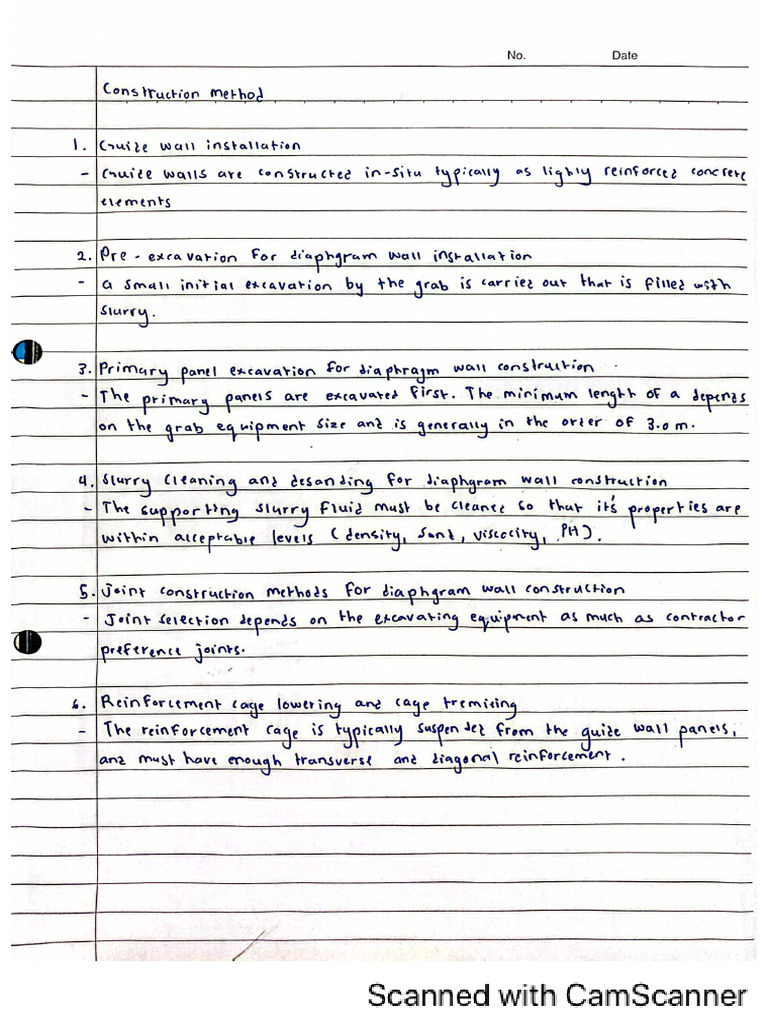 No. Date
Construction method
1. Guide wall installation
- Guide walls are constructed in-situ typically as lighly reinforced concrete
elements
2. Pre-excavation for diaphgram wall installation
- a small initial excavation by the grab is carried out that is filled with
slurry.
3. Primary panel excavation for diaphragm wall construction
- The primary panels are excavated first. The minimum length of a depends
on the grab equipment size and is generally in the order of 3.0 m.
4. Slurry cleaning and desanding for diaphgram wall construction
- The supporting slurry fluid must be cleaned so that it's properties are
within acceptable levels (density, sand, viscocity, PH).
5. Joint construction methods for diaphgram wall construction
- Joint selection depends on the excavating equipment as much as contractor
preference joints.
6. Reinforcement cage lowering and cage tremising
- The reinforcement cage is typically suspended from the guide wall panels,
and must have enough transverse and diagonal reinforcement.
Scanned with CamScanner